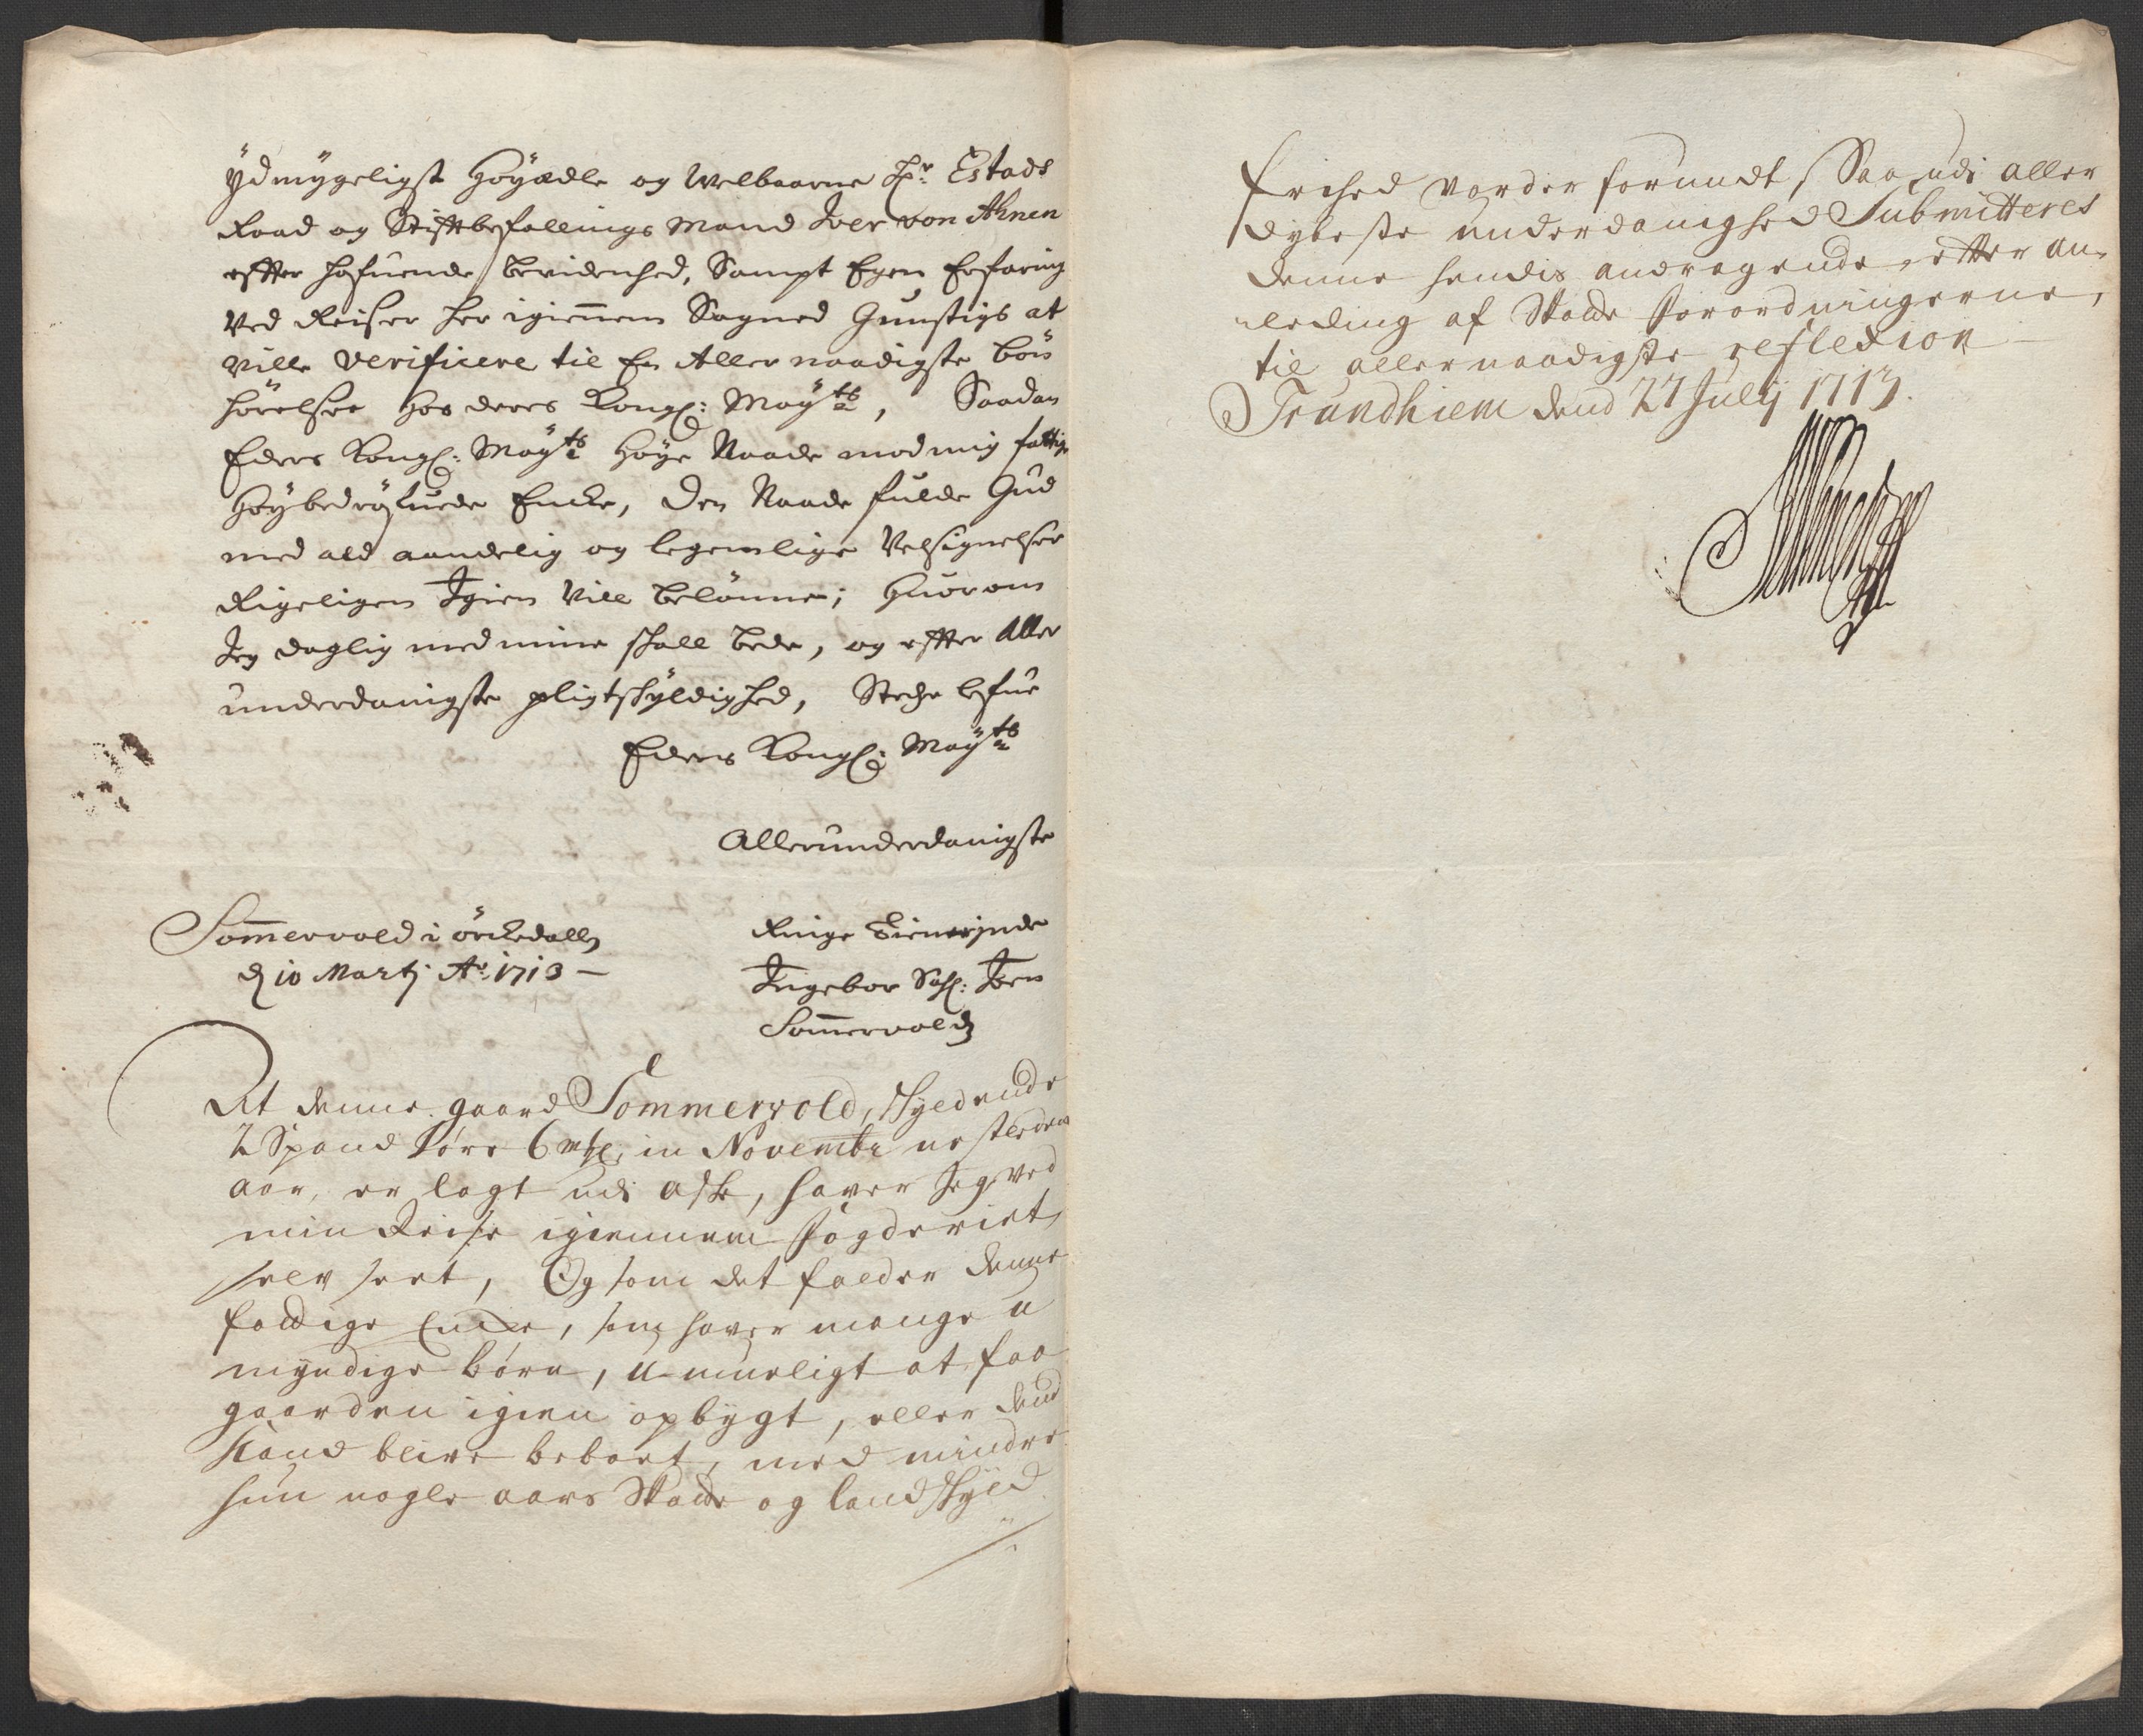 Ydmygeligst Höyædle og Welbaarne Hr: Estads
Raad og Stiftbefallings Mand Iver von Ahnen
effter hafuende bevidenhed, Sampt Egen Erfaring
Ved Reiser her igiennem Sogned Gunstigs at
Ville Verificere til En Aller naadigste bön
hörelse hos deres Kongl: Mayts, Saadan
Eders Kongl: Mayts Höye Naade mod mig fattig
Höybedröfuede Encke, Den Naade fulde Gud
med ald aandelig og legemlige Velsignelser
Rigeligen Igien Vill belönne; Huorom
Jeg daglig med mine skall bede, og effter Aller
underdanigste pligtskyldighed, Stedse lefue
Eders Kongl: Mayts
Allerunderdanigste
Sommervold i örckedallen
d 10 Martj Ao 1713 —
Ringe Tienerinde
Ingebor Sahl: Joen
Sommervold
At denne gaard Sommervold, skyldende
2 Spand Söre 6 mkl: in Novembr nestleden
aar, er lagt udi aske, haver Jeg ved
min Reise igiennem fogderiet,
selv seet, Og som det falder denne
fattige Encke, som haver mange u
myndige börn, u-mueligt at faa
gaarden igien opbygt, eller dend
Kand blive beboet, med mindre
hun nogle aars Skatte og landskyld
frihed vorder forundt, Saa udi aller
dybeste underdanighed Submitteres
denne hendis andragende, efter an-
leding af Skatte forordningerne,
til allernaadigste reflexion
Trundhiem dend 27 Julij 1713.